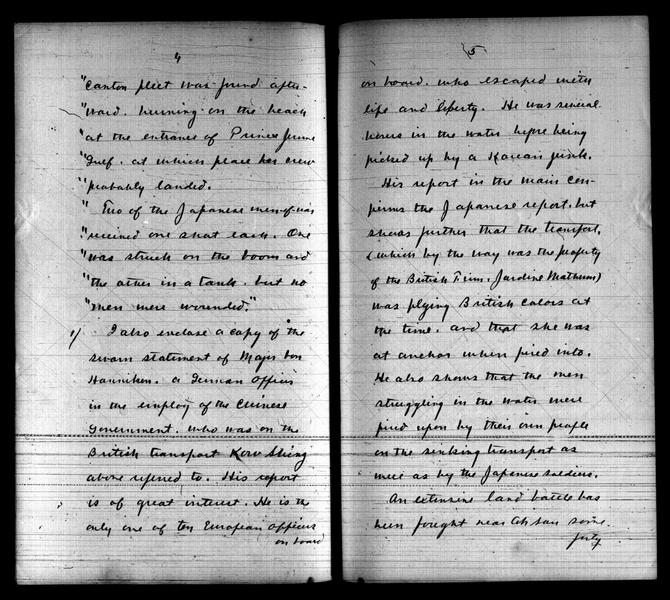 4
"Canton fleet was found after-
"ward. burning on the beach
"at the entrance of Prince Jerome
"Gulf. at which place her crew
"probably landed.
" Two of the Japanese men-of-war
"received one shot each. One
"was struck on the boom and
"the other in a tank. but no
"men were wounded."
1/ I also enclose a copy of the
sworn statement of Major von
Hanniken. a German Officer
in the employ of the Chinese
Government. who was on the
British transport Kow Shing
above referred to. His report
is of great interest. He is the
only one of ten European Officers
on board
5
on board. who escaped with
life and liberty. He was several
hours in the water before being
picked up by a Korean junk.
His report in the main con-
firms the Japanese report. but
shows further that the transport,
(which by the way was the property
of the British Firm. Jardine Matheson)
was flying British colors at
the time. and that she was
at anchor when fired into.
He also shows that the men
struggling in the water were
fired upon by their own people
on the sinking transport as
well as by the Japanese soldiers.
An extensive land battle has
been fought near Ah San some.
forty